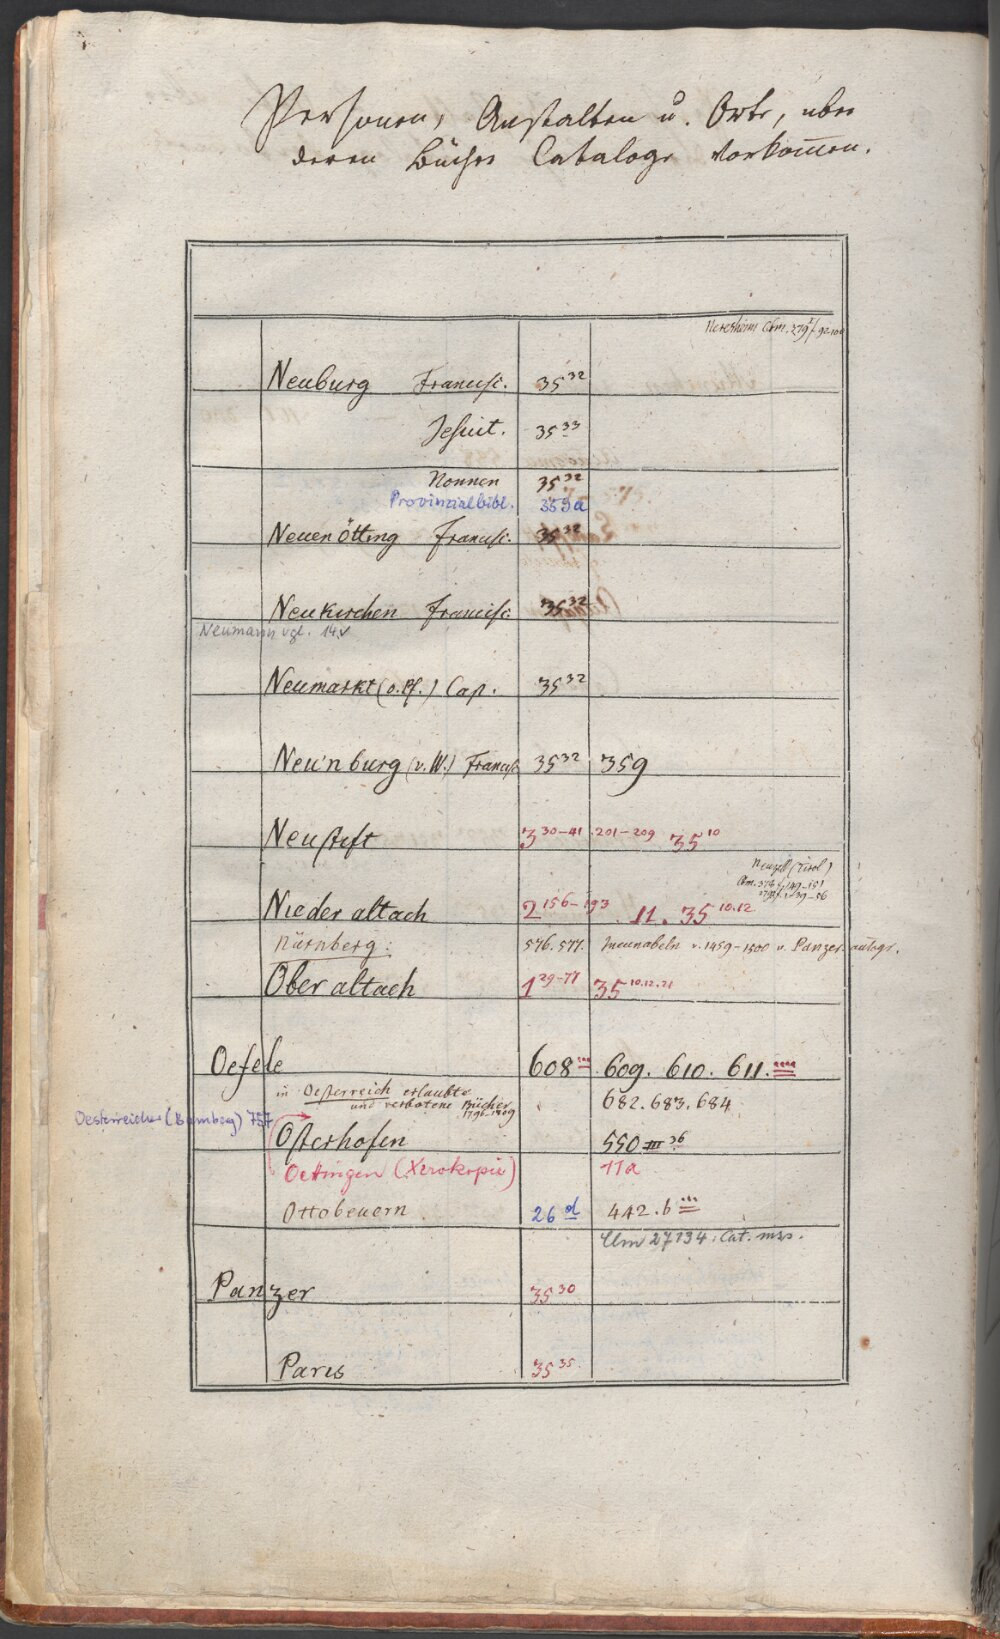 Personen, Anstalten u. Orte, über
deren Bücher Cataloge vorkom̅en.
Neresheim Cbm. 279 f. 92-100
Neuburg Francisc. 35 32
Jesuit. 35 33
Nonnen 35 32
Provinzialbibl. 359a
Neuenötting Francisc. 35 32
Neukirchen Francisc. 35 32
Neumann vgl. 14v
Neumarkt (o.Pf.) Cap. 35 32
Neu'nburg (v.W.) Francisc 35 32 359
Neustift 3 30-41 . 201-209 35 10
Neuzell (Tirol)
Cbm. 376 f. 149-151
Niederaltach 2 156-193 . 11. 35 10.12
Nürnberg: 576.577. Incunabeln v. 1459-1500 v. Panzer autogr.
Oberaltach 1 29-77 35 10.12.21
Oefele 608 609. 610. 611.
in Oesterreich erlaubte
und verbotene Bücher 682.683.684
1796-1809
Oesterreicher (Bamberg) 757
Osterhofen 550 III 36
Oettingen (Xerokopie) 11a
Ottobeuern 26 d 442.b
Clm 27134: Cat. mss.
Panzer 35 30
Paris 35 35.